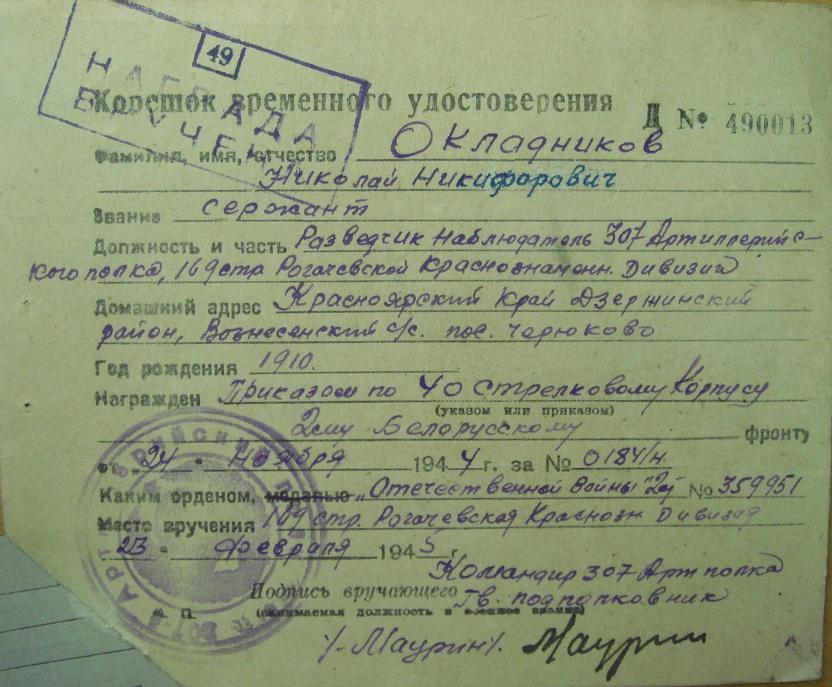 49
НАГРАДА
ВРУЧЕНА
Корешок временного удостоверения Д № 490013
Фамилия, имя, отчество Окладников
Николай Никифорович
Звание сержант
Должность и часть Разведчик наблюдатель 307 Артиллерийс-
кого полка, 169 стр Рогачевской Краснознаменн. Дивизий
Домашний адрес Красноярский край Дзержинский
район, Вознесенский с/с. пос. Черюково
Год рождения 1910.
Награжден Приказом по 40 Стрелковому Корпусу
(указом или приказом)
2му Белорусскому фронту
от „24" ноября 1944 г. за № 0184/н.
Каким орденом, медалью „Отечественной Войны" 2й № 359951
Место вручения 169 стр. Рогачевская Краснозн Дивизия
23 февраля 1945 г.
Командир 307 Арт полка
Подпись вручающего Гв. подполковник
М. П. (занимаемая должность и военное звание)
/-Маурин/. Маурин